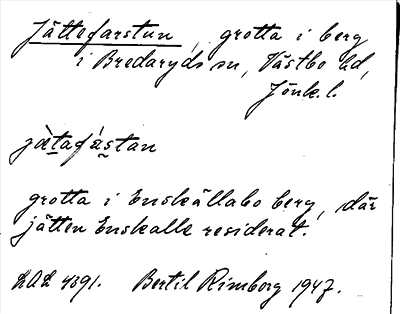 Jättefarstun, grotta i berg
i Bredaryds sn, Västbo hd,
Jönk.l.
jæ̀tafá̱s̱tan
grotta i Enskällabo berg, där
jätten Enskalle residerat.
LAL 4391. Bertil Rimborg 1947.